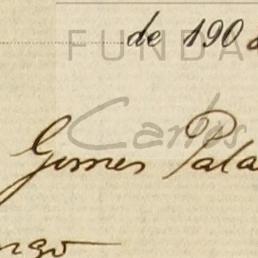 de 190
FUNDA
Carlos
Gomes Pala
ngo